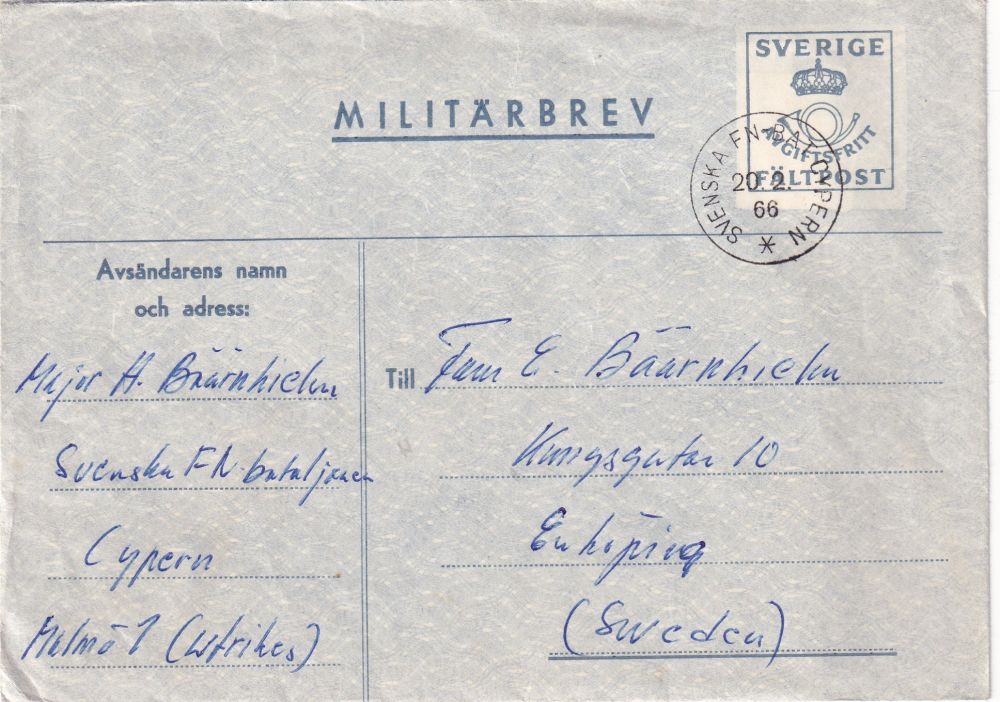 MILITÄRBREV
SVERIGE
AVGIFTSFRITT
FÄLTPOST
SVENSKA FN-BAT CYPERN
20. 2.
66
Avsändarens namn
och adress:
Major H. Bäärnhielm
Svenska FN-bataljonen
Cypern
Malmö 1 (utrikes)
Till Fam E. Bäärnhielm
Kungsgatan 10
Enköping
(Sweden)